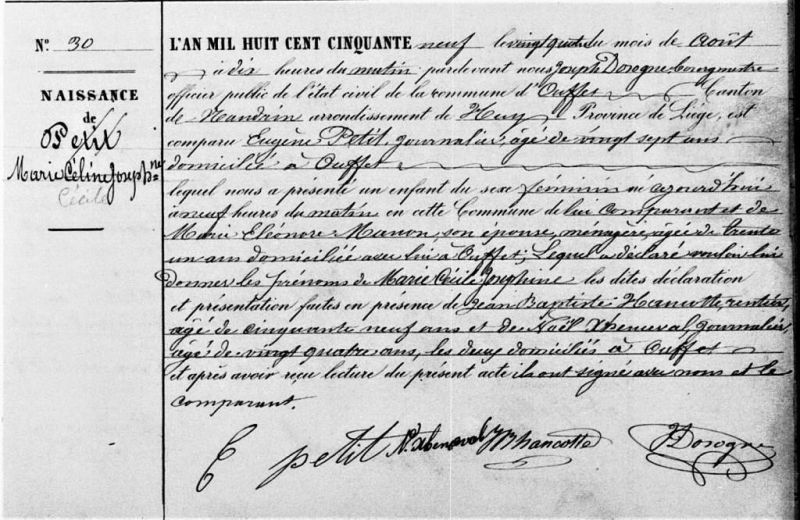 N.° 30
NAISSANCE
de
Petit
Marie Céline Joseph=ne
Cécile
L'AN MIL HUIT CENT CINQUANTE neuf le vingt quatre du mois de Août
à dix heures du matin pardevant nous Joseph Dorogne, bourgmestre
officier public de l'état civil de la commune d'Ouffet Canton
de Nandrin arrondissement de Huy Province de Liége, est
comparu Eugène Petit, journalier, âgé de vingt sept ans
domicilié à Ouffet
lequel nous a présenté un enfant du sexe féminin né cejourd'hui
à neuf heures du matin en cette Commune de lui comparant et de
Marie Eléonore Manon, son épouse, ménagère, âgée de trente
un ans domiciliée avec lui à Ouffet; Lequel a déclaré vouloir lui
donner les prénoms de Marie Cécile Joséphine les dites déclaration
et présentation faites en présence de Jean Baptiste Hancotte, rentier,
âgé de cinquante neuf ans et de Noël Xhenceval, journalier,
âgé de vingt quatre ans, les deux domiciliés à Ouffet
et après avoir reçu lecture du présent acte ils ont signé avec nous et le
comparant.
E petit N. xhenceval JB hancotte JDorogne